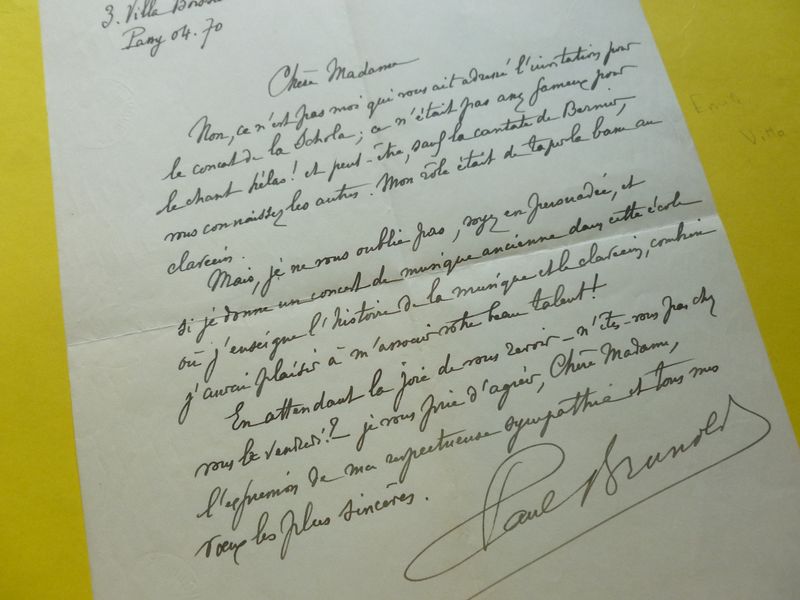 3. Villa
Passy 04.70
Chère Madame
Non, ce n'est pas moi qui vous ait adressé l'invitation pour
le concert de la Schola ; ce n'était pas assez fameux pour
le chant hélas ! et peut-être, sauf la cantate de Bernier,
vous connaissez les autres. Mon rôle était de taper la basse au
clavecin.
Mais, je ne vous oublie pas, soyez en persuadée, et
si je donne un concert de musique ancienne dans cette école
où j'enseigne l'histoire de la musique et le clavecin, combien
j'aurai plaisir à m'associer votre beau talent !
En attendant la joie de vous revoir – n'êtes-vous pas chez
vous le vendredi ? – je vous prie d'agréer, Chère Madame,
l'expression de ma respectueuse sympathie et tous mes
vœux les plus sincères.
Paul Brunold
Villa